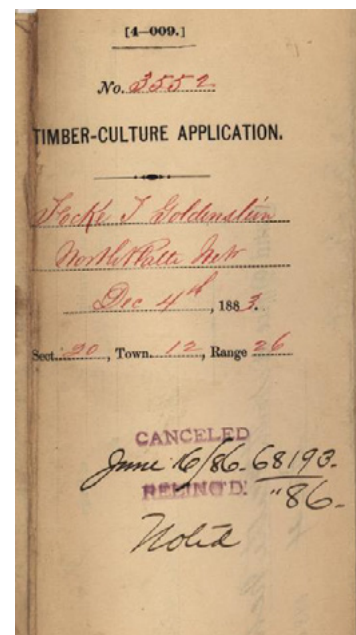 [4—009.]
No. 3552
TIMBER-CULTURE APPLICATION.
Focke J Goldenstein
North Platte Neb
Dec 4th, 1883.
Sect. 20, Town. 12, Range 26
CANCELED
June 16/86. 68193.
RELINQ'D. "86.
Noted